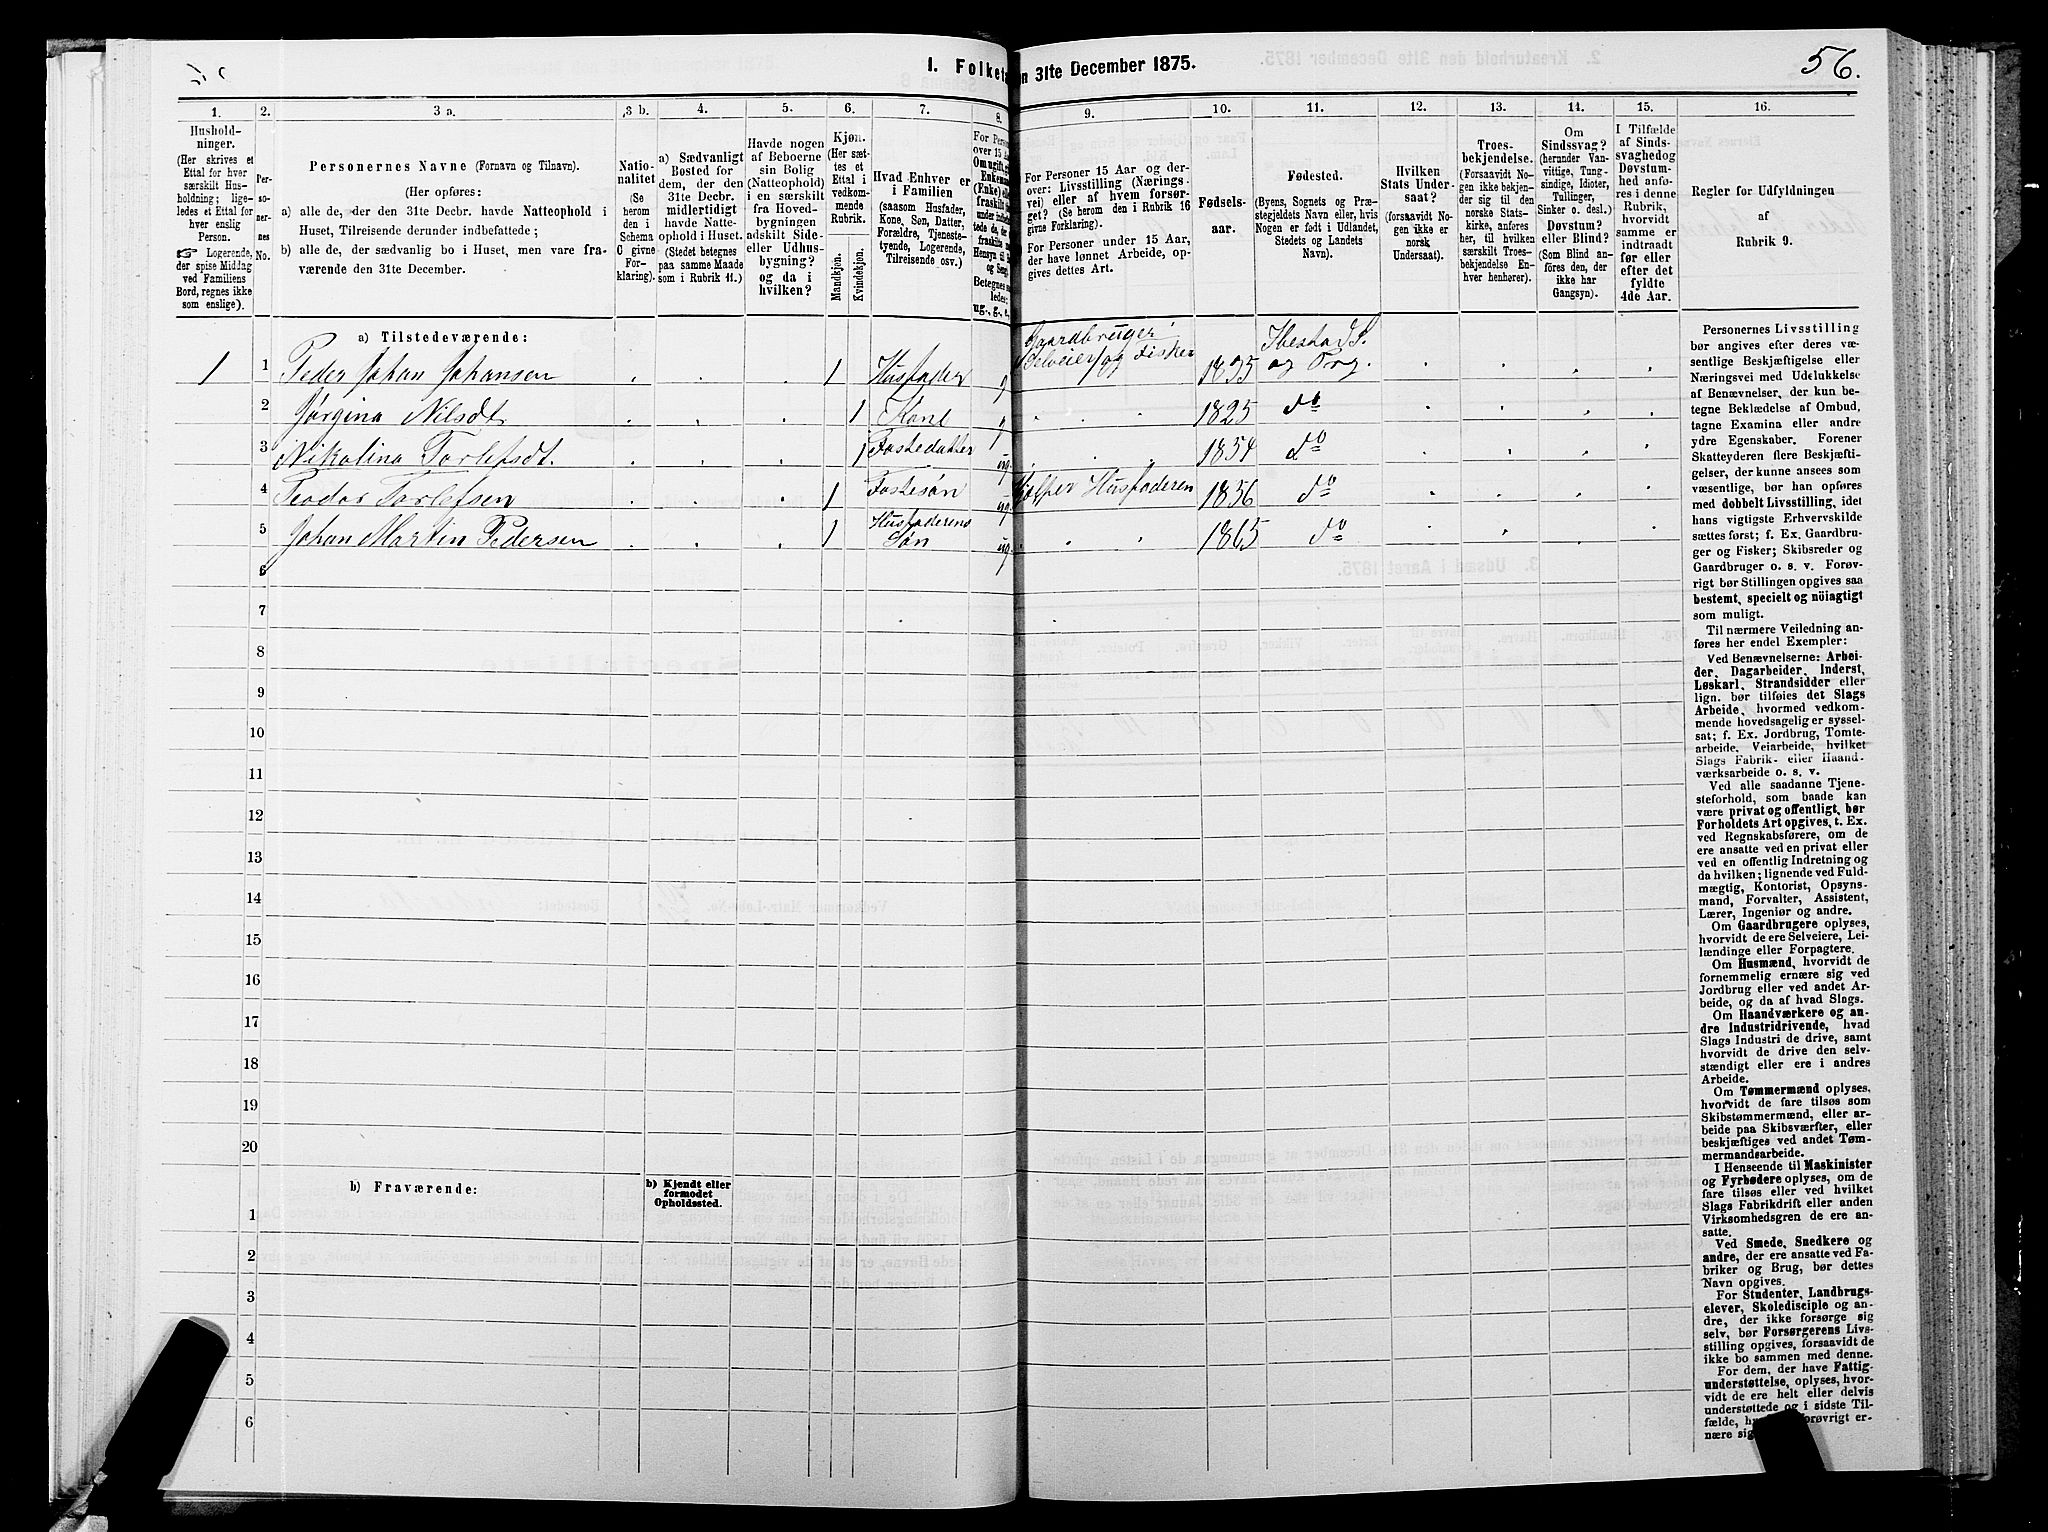 56.
I. Folketa
n 31te December 1875.
1.
Hushold-
ninger.
(Her skrives et
Ettal for hver
særskilt Hus-
holdning; lige-
ledes et Ettal for
hver enslig
Person.
☞ Logerende,
der spise Middag
ved Familiens
Bord, regnes ikke
som enslige).
2.
Per-
so-
ner-
nes
No.
3 a.
Personernes Navne (Fornavn og Tilnavn).
(Her opføres:
a) alle de, der den 31te Decbr. havde Natteophold i
Huset, Tilreisende derunder indbefattede;
b) alle de, der sædvanlig bo i Huset, men vare fra-
værende den 31te December.
3 b.
Natio-
nalitet
(Se
herom
den i
Schema
C givne
For-
klaring).
4.
a) Sædvanligt
Bosted for
dem, der den
31te Decbr.
midlertidigt
havde Natte-
ophold i Huset.
(Stedet betegnes
paa samme Maade
som i Rubrik 11.)
5.
Havde nogen
af Beboerne
sin Bolig
(Natteophold)
i en særskilt
fra Hoved-
bygningen
adskilt Side-
eller Udhus-
bygning?
og da i
hvilken?
6.
Kjøn.
(Her sæt-
tes et
Ettal i
vedkom-
mende
Rubrik.
Mandkjøn.
Kvindekjøn.
7.
Hvad Enhver er
i Familien
(saasom Husfader,
Kone, Søn, Datter,
Forældre, Tjeneste-
tyende, Logerende,
Tilreisende osv.)
8.
For Pers
over 15 A
Om ugift, g
Enkem
(Enke) el
fraskilt
under indb
tede de, de
fraskilte u
Hensyn til
og Seng
Betegnes sa
ledes:
ug., g., e,
9.
For Personer 15 Aar og der-
over: Livsstilling (Nærings-
vei) eller af hvem forsør-
get? (Se herom den i Rubrik 16
givne Forklaring).
For Personer under 15 Aar,
der have lønnet Arbeide, op-
gives dettes Art.
10.
Fødsels-
aar.
11.
Fødested.
(Byens, Sognets og Præ-
stegjeldets Navn eller, hvis
Nogen er født i Udlandet,
Stedets og Landets
Navn).
12.
Hvilken
Stats Under-
saat?
(forsaavidt No-
gen ikke er
norsk
Undersaat).
13.
Troes-
bekjendelse.
(Forsaavidt No-
gen ikke bekjen-
der sig til den
norske Stats-
kirke, anføres
her, til hvilken
særskilt Troes-
bekjendelse En-
hver henhører).
14.
Om
Sindssvag?
(herunder Van-
vittige, Tung-
sindige, Idioter,
Tullinger,
Sinker o. desl.)
Døvstum?
eller Blind?
(Som Blind an-
føres den, der
ikke har
Gangsyn).
15.
I Tilfælde
af Sinds-
svaghed og
Døvstum-
hed anfø-
res i denne
Rubrik,
hvorvidt
samme er
indtraadt
før eller
efter det
fyldte
4de Aar.
16.
Regler for Udfyldningen
af
Rubrik 9.
a) Tilstedeværende:
1 1 Peder Johan Johansen 1 Husfader g Gaardbruger Selveier og Fisker 1835 Ibestad S. og Prg.
2 Jørgina Nilsdt 1 Kone g 1825 do
3 Nikolina Torlefsdt. 1 Fostedatter ug. 1854 do
4 Peodor Torlefsen 1 Fostesøn ug. Hjelper Husfaderen 1856 do
5 Johan Martin Pedersen 1 Husfaderens Søn ug. 1865 do
6
7
8
9
10
11
12
13
14
15
16
17
18
19
20
b) Fraværende:
b) Kjendt eller
formodet
Opholdssted.
1
2
3
4
5
6
Personernes Livsstilling
bør angives efter deres væ-
sentlige Beskjæftigelse eller
Næringsvei med Udelukkelse
af Benævnelser, der kun be-
tegne Beklædelse af Ombud,
tagne Examina eller andre
ydre Egenskaber. Forener
Skatteyderen flere Beskjæfti-
gelser, der kunne ansees som
væsentlige, bør han opføres
med dobbelt Livsstilling, idet
hans vigtigste Erhvervskilde
sættes først; f. Ex. Gaardbru-
ger og Fisker; Skibsreder og
Gaardbruger o. s. v. Forøv-
rigt bør Stillingen opgives saa
bestemt, specielt og nøiagtigt
som muligt.
Til nærmere Veiledning an-
føres her endel Exempler:
Ved Benævnelserne: Arbei-
der, Dagarbeider, Inderst,
Løskarl, Strandsidder eller
lign. bør tilføies det Slags
Arbeide, hvormed vedkom-
mende hovedsagelig er syssel-
sat; f. Ex. Jordbrug, Tomte-
arbeide, Veiarbeide, hvilket
Slags Fabrik- eller Haand-
værksarbeide o. s. v.
Ved alle saadanne Tjene-
steforhold, som baade kan
være privat og offentligt, bør
Forholdets Art opgives, t. Ex.
ved Regnskabsførere, om de
ere ansatte ved en privat eller
ved en offentlig Indretning og
da hvilken; lignende ved Fuld-
mægtig, Kontorist, Opsyns-
mand, Forvalter, Assistent,
Lærer, Ingeniør og andre.
Om Gaardbrugere oplyses,
hvorvidt de ere Selveiere, Lei-
lændinge eller Forpagtere.
Om Husmænd, hvorvidt de
fornemmelig ernære sig ved
Jordbrug eller ved andet Ar-
beide, og da af hvad Slags.
Om Haandværkere og an-
dre Industridrivende, hvad
Slags Industri de drive, samt
hvorvidt de drive den selv-
stændigt eller ere i andres
Arbeide.
Om Tømmermænd oplyses,
hvorvidt de fare tilsøs som
Skibstømmermænd, eller ar-
beide paa Skibsværfter, eller
beskjæftiges ved andet Tøm-
mermandsarbeide.
I Henseende til Maskinister
og Fyrbødere oplyses, om de
fare tilsøs eller ved hvilket
Slags Fabrikdrift eller anden
Virksomhedsgren de ere an-
satte.
Ved Smede, Snedkere og
andre, der ere ansatte ved Fa-
briker og Brug, bør dettes
Navn opgives.
For Studenter, Landbrugs-
elever, Skoledisciple og an-
dre, der ikke forsørge sig
selv, bør Forsørgerens Livs-
stilling opgives, forsaavidt de
ikke bo sammen med denne.
For dem, der have Fattig-
understøttelse, oplyses, hvor-
vidt de ere helt eller delvis
understøttede og i sidste Til-
fælde, h forøvrigt er-
nære sig